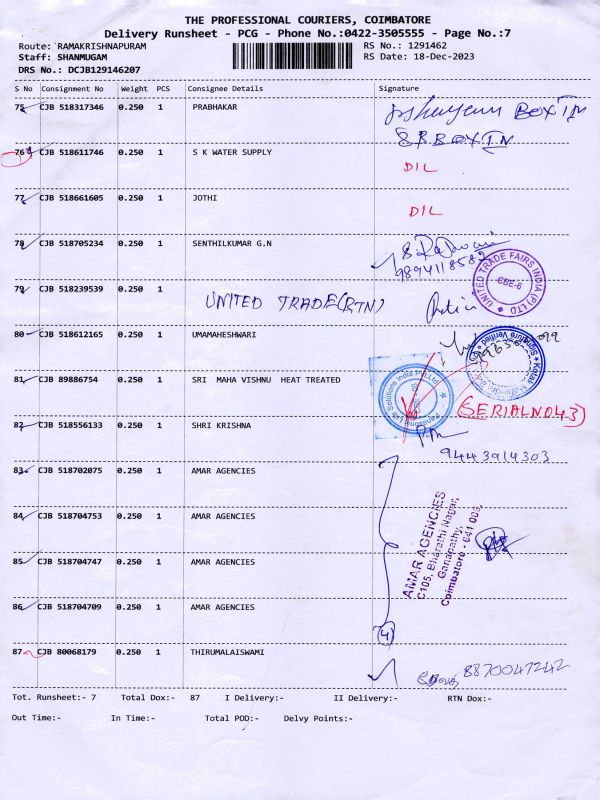 THE PROFESSIONAL COURIERS, COIMBATORE
Delivery Runsheet - PCG - Phone No.:0422-3505555 - Page No.:7
Route: RAMAKRISHNAPURAM
RS No.: 1291462
Staff: SHANMUGAM
RS Date: 18-Dec-2023
DRS No.: DCJB129146207
S No Consignment No Weight PCS Consignee Details Signature
75 CJB 518317346 0.250 1 PRABHAKAR
BOX TIN
S R BOX TIN
76 CJB 518611746 0.250 1 S K WATER SUPPLY
DIL
77 CJB 518661605 0.250 1 JOTHI
DIL
78 CJB 518705234 0.250 1 SENTHILKUMAR G.N
9894118582
UNITED TRADE FAIRS INDIA (P) LTD
CBE-6
79 CJB 518239539 0.250 1
UNITED TRADE(RTN)
80 CJB 518612165 0.250 1 UMAMAHESHWARI
Signature Verified
Kotak
81 CJB 89886754 0.250 1 SRI MAHA VISHNU HEAT TREATED
Solutions India Pvt Ltd
(SERIAL NO 43)
82 CJB 518556133 0.250 1 SHRI KRISHNA
9443914303
83 CJB 518702075 0.250 1 AMAR AGENCIES
84 CJB 518704753 0.250 1 AMAR AGENCIES
AMAR AGENCIES
C105, Bharathi Nagar,
Ganapathy,
Coimbatore - 641 006.
85 CJB 518704747 0.250 1 AMAR AGENCIES
86 CJB 518704709 0.250 1 AMAR AGENCIES
(4)
87 CJB 80068179 0.250 1 THIRUMALAISWAMI
8870047242
Tot. Runsheet:- 7 Total Dox:- 87 I Delivery:- II Delivery:- RTN Dox:-
Out Time:- In Time:- Total POD:- Delvy Points:-